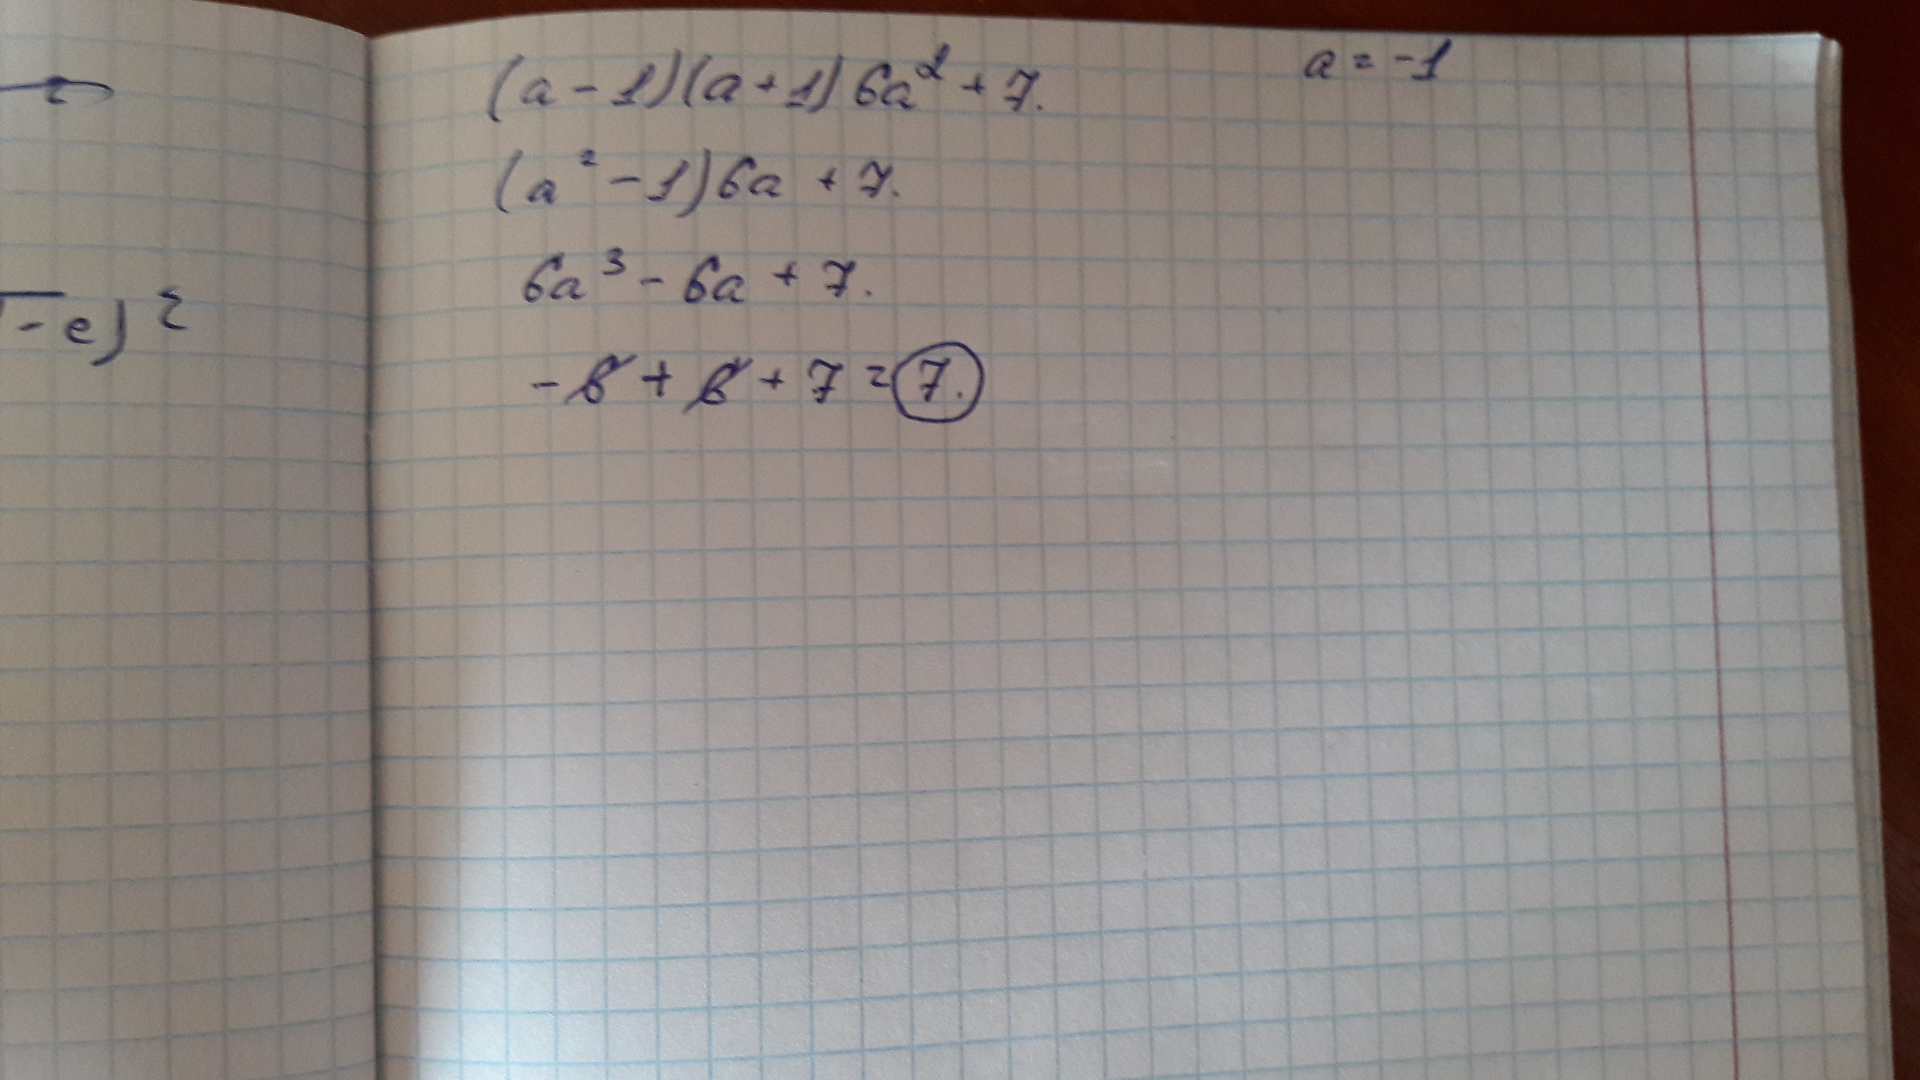 (a - 1)(a + 1) 6a² + 7.
a = -1
(a² - 1) 6a + 7.
6a³ - 6a + 7.
- 6 + 6 + 7 = 7.
- e)²